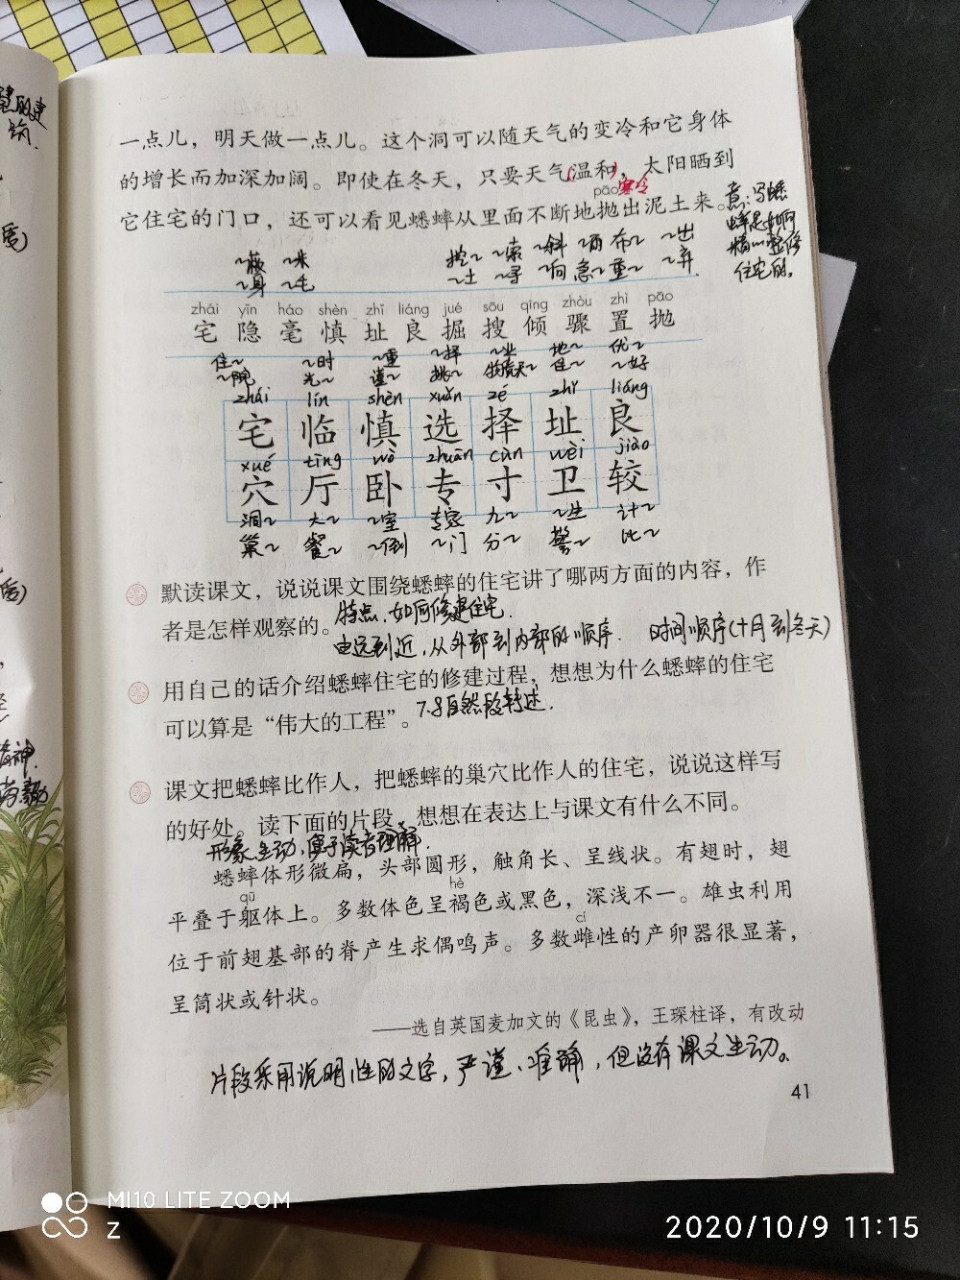 一点儿，明天做一点儿。这个洞可以随天气的变冷和它身体
的增长而加深加阔。即使在冬天，只要天气(温和)，太阳晒到
寒冷
pāo
它住宅的门口，还可以看见蟋蟀从里面不断地抛出泥土来。
意:写蟋
蟀是如何
精心整修
住宅的。
挖~ ~索 ~斜 ~西 布~ ~出
~米
~身 ~毛 ~土 ~寻 ~向 急~ 重~ ~弃
zhái yǐn háo shèn zhǐ liáng jué sōu qīng zhòu zhì pāo
宅 隐 毫 慎 址 良 掘 搜 倾 骤 置 抛
住~ ~时 ~重 ~择 地~ 优~
~院 光~ 谨~ 挑~ 住~ ~好
zhái lín shèn xuǎn zé zhǐ liáng
宅 临 慎 选 择 址 良
xué tīng wò zhuān cùn wèi jiào
穴 厅 卧 专 寸 卫 较
洞~ 大~ ~室 专家 九~ ~生 计~
巢~ 餐~ ~倒 ~门 分~ 警~ 比~
默读课文，说说课文围绕蟋蟀的住宅讲了哪两方面的内容，作
者是怎样观察的。
特点、如何修建住宅.
由远到近，从外部到内部的顺序. 时间顺序(十月到冬天)
用自己的话介绍蟋蟀住宅的修建过程，想想为什么蟋蟀的住宅
可以算是“伟大的工程”。
7.8自然段转述.
课文把蟋蟀比作人，把蟋蟀的巢穴比作人的住宅，说说这样写
的好处。读下面的片段，想想在表达上与课文有什么不同。
形象生动，便于读者理解.
蟋蟀体形微扁，头部圆形，触角长、呈线状。有翅时，翅
qū hè
平叠于躯体上。多数体色呈褐色或黑色，深浅不一。雄虫利用
cí
位于前翅基部的脊产生求偶鸣声。多数雌性的产卵器很显著，
呈筒状或针状。
——选自英国麦加文的《昆虫》，王琛柱译，有改动
片段采用说明性的文字，严谨、准确，但没有课文生动。
41
MI10 LITE ZOOM
Z
2020/10/9 11:15